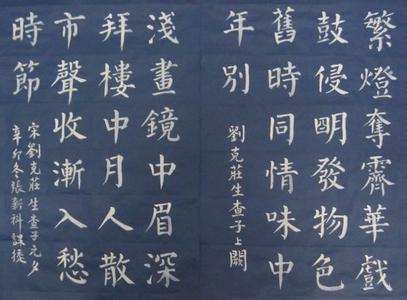 繁燈奪霽華戲
鼓侵明發物色
舊時同情味中
年別
劉克莊生查子上闕
淺畫鏡中眉深
拜樓中月人散
市聲收漸入愁
時節
宋劉克莊生查子元夕
辛卯冬張新科課後